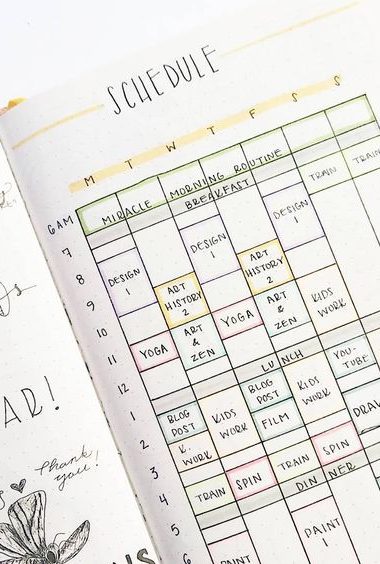 SCHEDULE
M T W T F S S
6AM
MIRACLE MORNING ROUTINE
BREAKFAST
TRAIN
TRAIN
7
DESIGN 1
DESIGN 1
8
DESIGN 1
ART HISTORY 2
ART HISTORY 2
9
10
ART & ZEN
YOGA
ART & ZEN
KIDS WORK
11
YOGA
12
LUNCH
YOU-TUBE
1
BLOG POST
KIDS WORK
BLOG POST
KIDS WORK
2
K. WORK
FILM
DRAW
3
4
TRAIN
SPIN
TRAIN
SPIN
DINNER
5
PAINT 1
6
PAINT
AR!
Thank you!